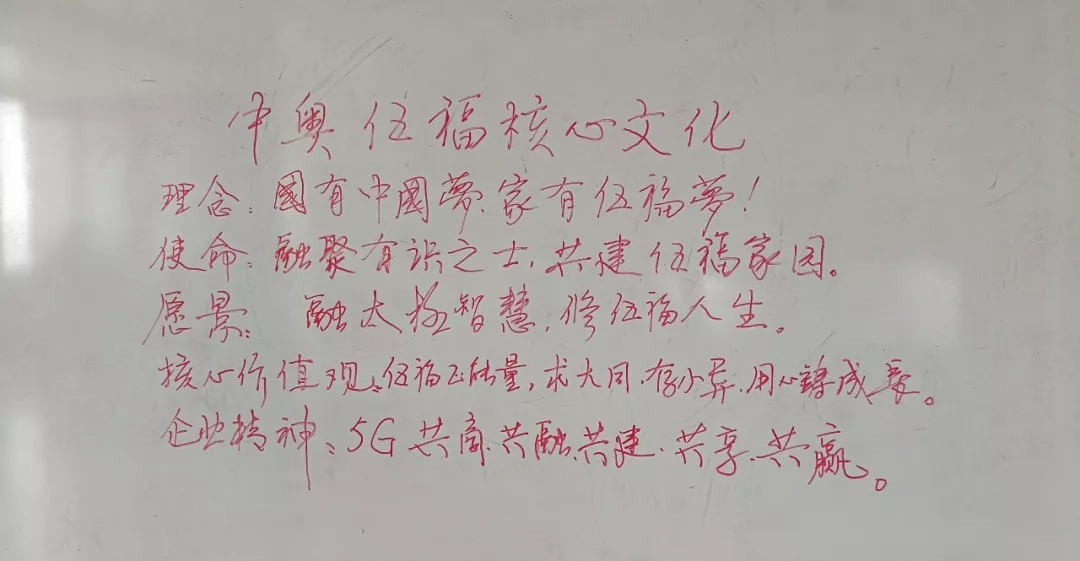 中奥伍福核心文化
理念:國有中國夢、家有伍福夢!
使命:融聚有识之士,共建伍福家园。
愿景:融太极智慧,修伍福人生。
核心价值观:伍福正能量,求大同.存小异.用心鑄成愛。
企业精神:5G共商.共融.共建.共享.共赢。